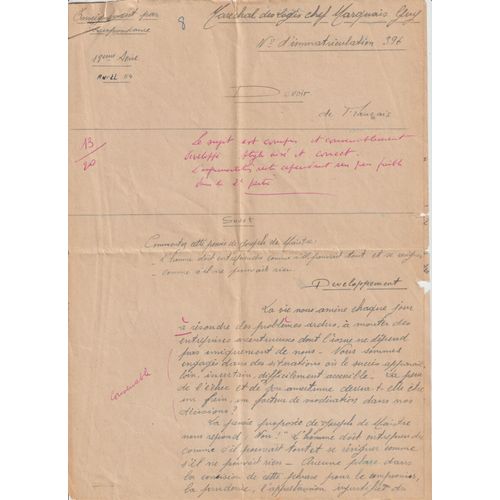 Enseignement par
correspondance
8
Maréchal des logis chef Marquais Guy
No d'immatriculation 396
19eme Série
Avril 54
Devoir
de Français
13/20
Le sujet est compris et convenablement
développé. Style aisé et correct.
L'argumentation est cependant un peu faible
dans la 2e partie
Sujet
Commentez cette pensée de Joseph de Maistre:
"L'homme doit entreprendre comme s'il pouvait tout et se résigner
comme s'il ne pouvait rien.
Développement
La vie nous amène chaque jour
à résoudre des problèmes ardus, à monter des
entreprises aventureuses dont l'issue ne dépend
pas uniquement de nous. Nous sommes
engagés dans des situations où le succès apparait
loin, incertain, difficilement accessible. La peur
de l'échec et de devra-t-elle être
un frein, un facteur de modération dans nos
décisions?
convenable
La pensée proposée de Joseph de Maistre
nous répond "Non!" "L'homme doit entreprendre
comme s'il pouvait tout et se résigner comme
s'il ne pouvait rien. Aucune place dans
la concision de cette phrase pour le compromis,
la prudence, l'appréciation